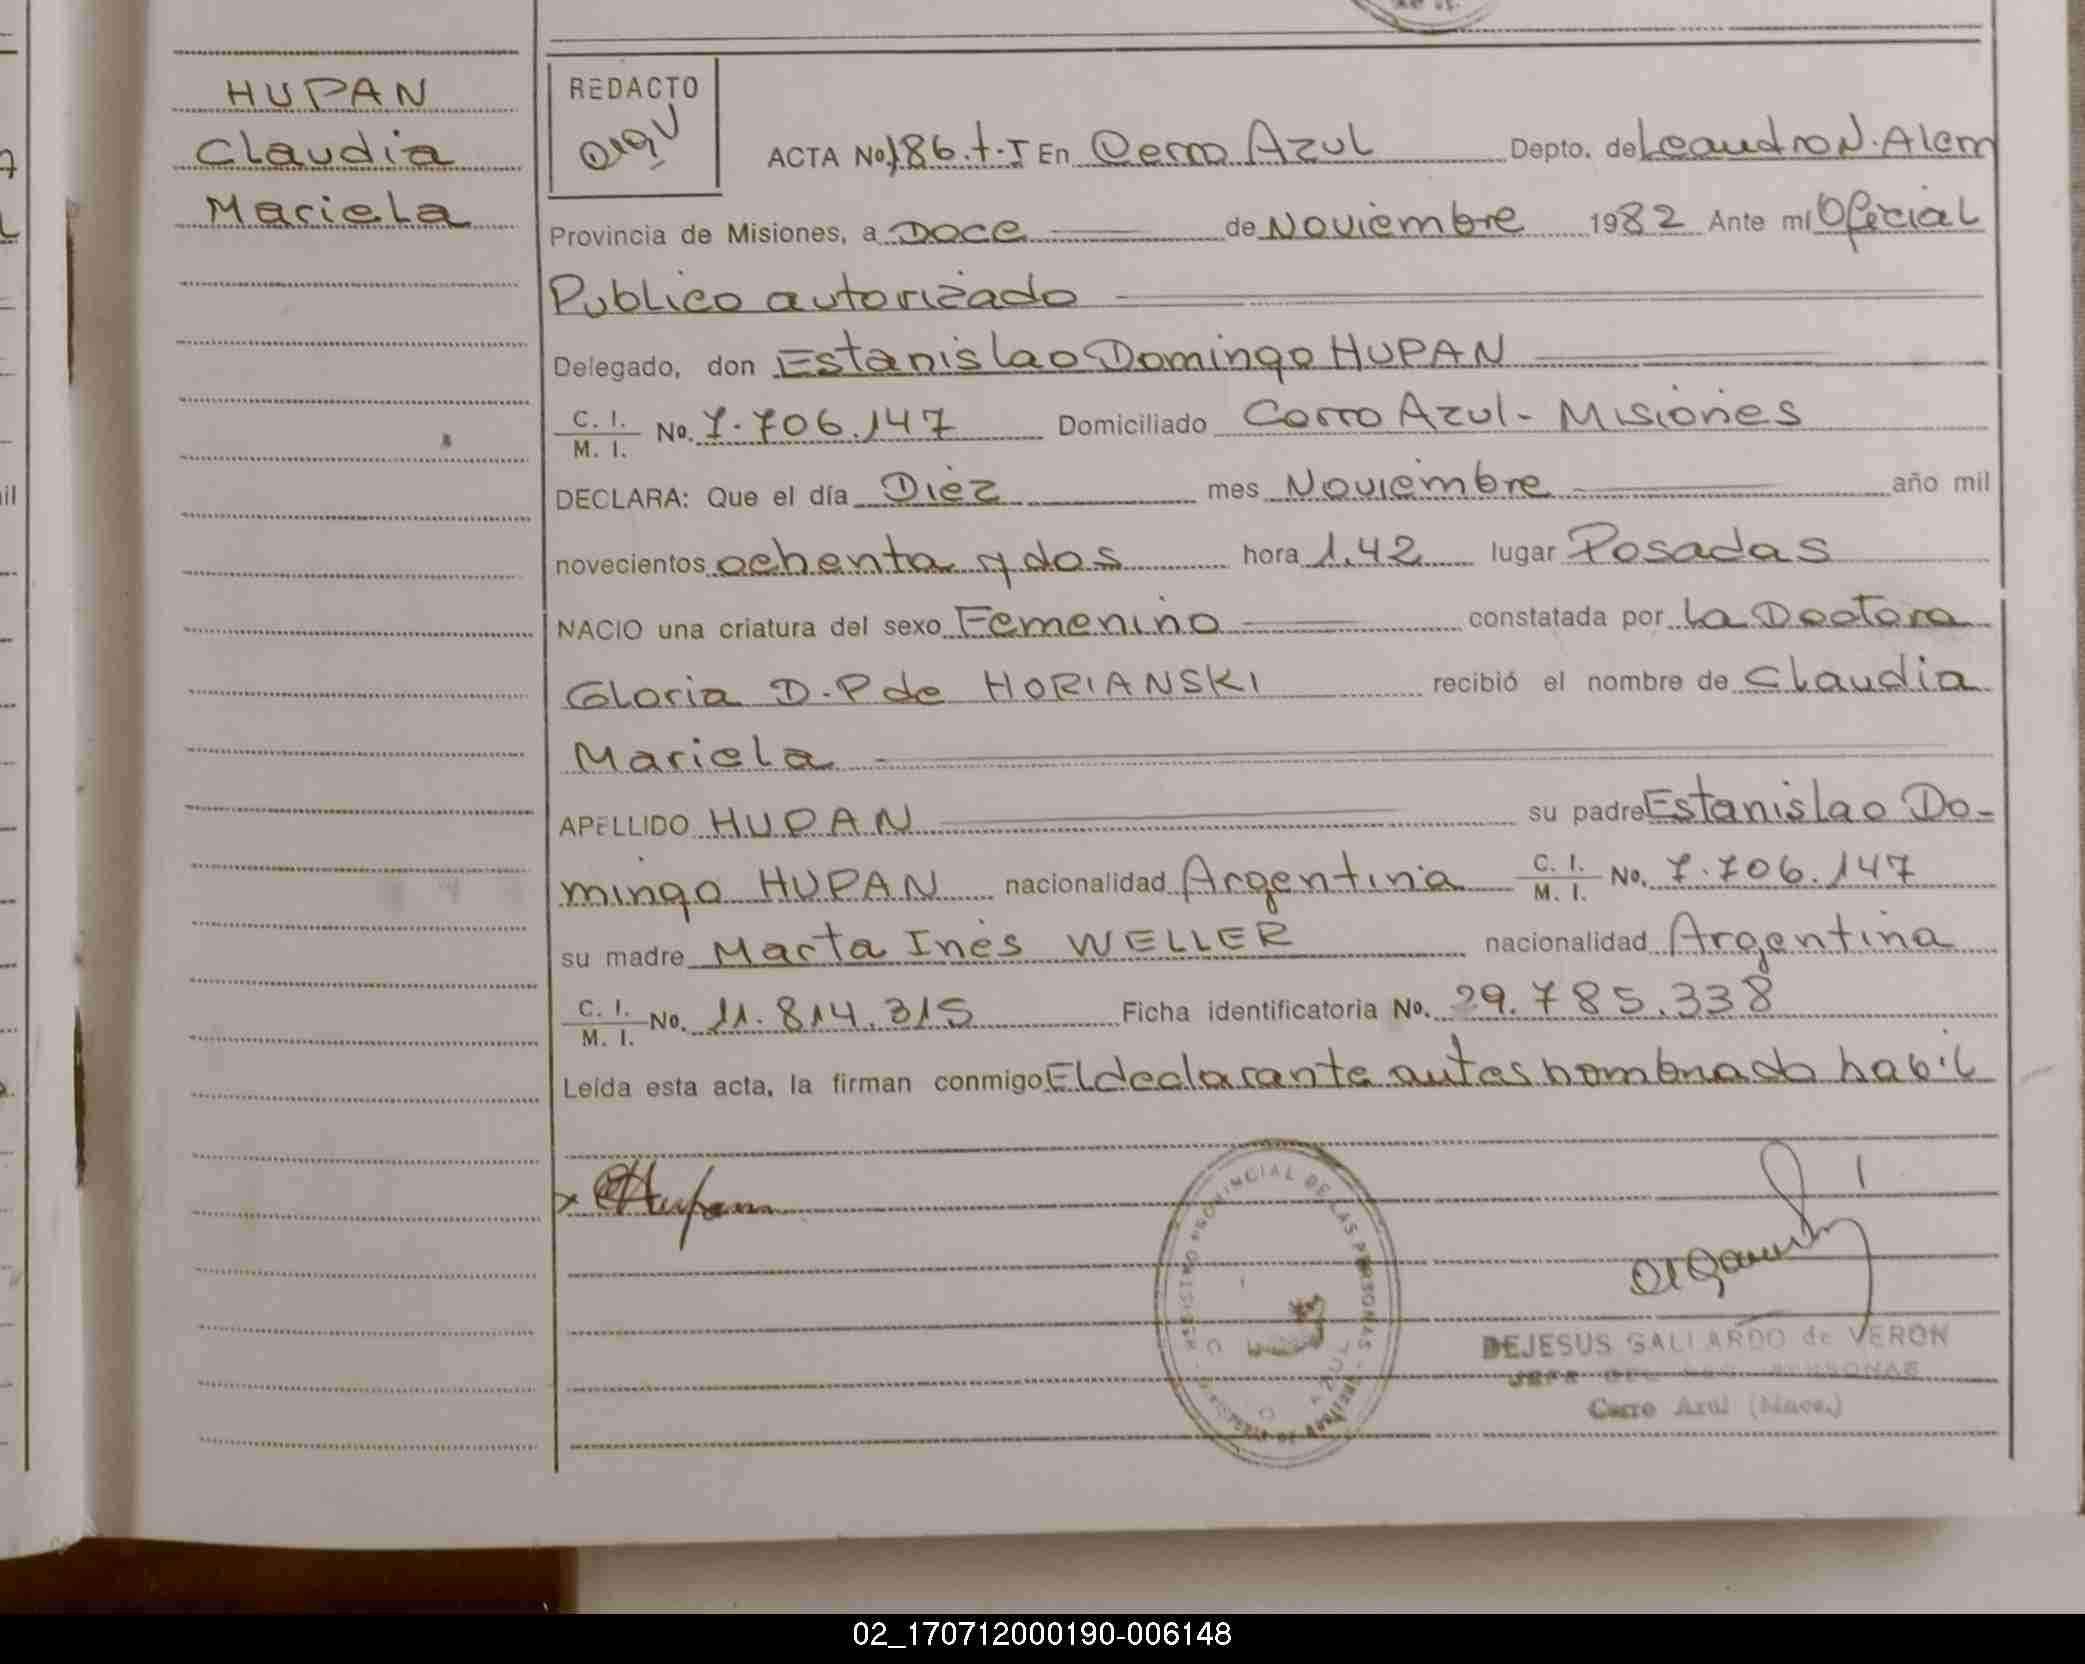 HUPAN
Claudia
Mariela
REDACTO
ACTA No 186.t-I En Cerro Azul Depto. de Leandro N. Alem
Provincia de Misiones, a Doce de Noviembre 1982 Ante mi Oficial
Publico autorizado
Delegado, don Estanislao Domingo HUPAN
C. I. / M. I. No. 7.706.147 Domiciliado Cerro Azul - Misiones
DECLARA: Que el día Diez mes Noviembre año mil
novecientos ochenta y dos hora 1,42 lugar Posadas
NACIO una criatura del sexo Femenino constatada por la Doctora
Gloria D. P de HORIANSKI recibió el nombre de Claudia
Mariela
APELLIDO HUPAN su padre Estanislao Do-
mingo HUPAN nacionalidad Argentina C. I. / M. I. No. 7.706.147
su madre Marta Inés WELLER nacionalidad Argentina
C. I. / M. I. No. 11.814.315 Ficha identificatoria No. 29.785.338
Leída esta acta, la firman conmigo El declarante antes nombrado habil
Hupan
REGISTRO PROVINCIAL DE LAS PERSONAS
DEJESUS GALLARDO de VERON
JEFA DEL REG. PERSONAS
Cerro Azul (Mnes.)
02_170712000190-006148